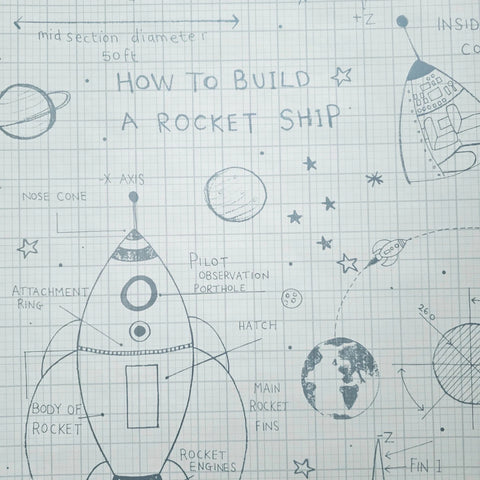 mid section diameter
50ft
+Z
INSID
CO
HOW TO BUILD
A ROCKET SHIP
-X AXIS
NOSE CONE
PILOT
OBSERVATION
PORTHOLE
ATTACHMENT
RING
HATCH
260
BODY OF
ROCKET
MAIN
ROCKET
FINS
ROCKET
ENGINES
-Z
FIN 1